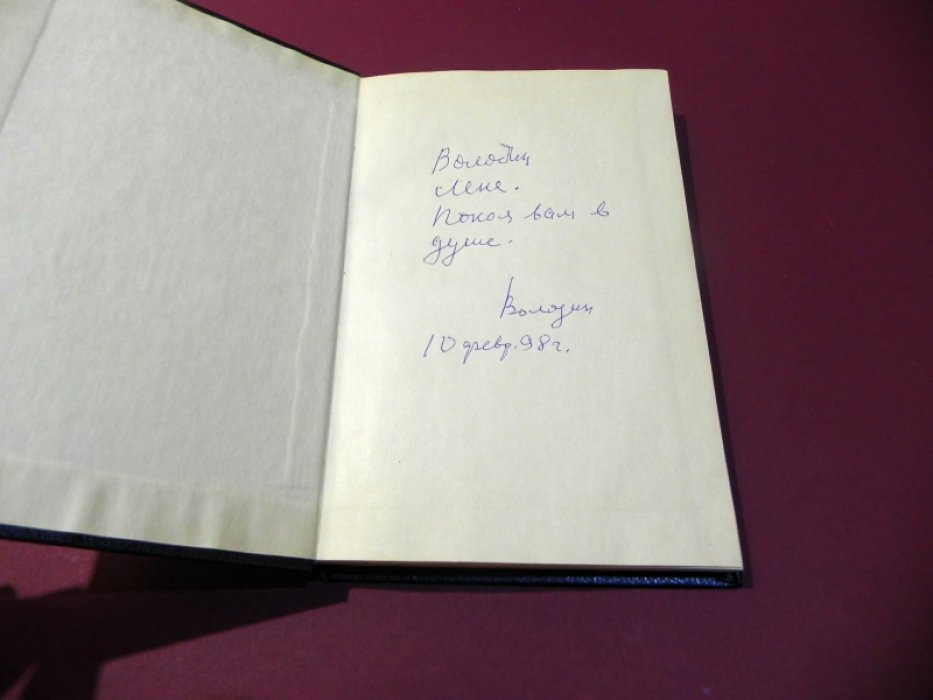 Володин
Лене.
Покоя вам в
душе.
Володин
10 февр. 98 г.